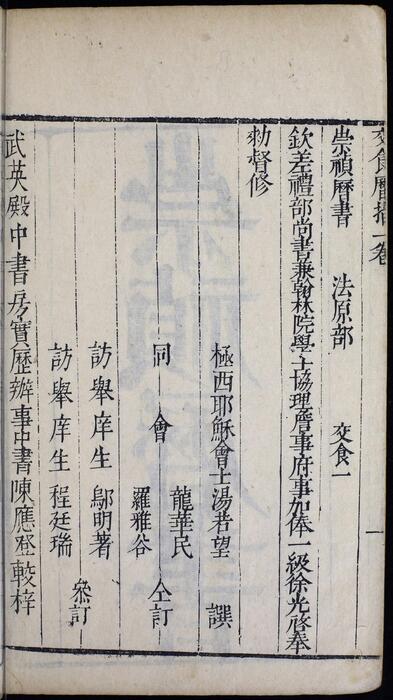 交食曆指一卷
崇禎曆書 法原部 交食一 一
欽差禮部尚書兼翰林院學士協理詹事府事加俸一級徐光啓奉
勑督修
極西耶穌會士湯若望 譔
龍華民
同會 仝訂
羅雅谷
訪舉庠生 鄔明著
叅訂
訪舉庠生 程廷瑞
武英殿中書房實歷辦事中書陳應登較梓